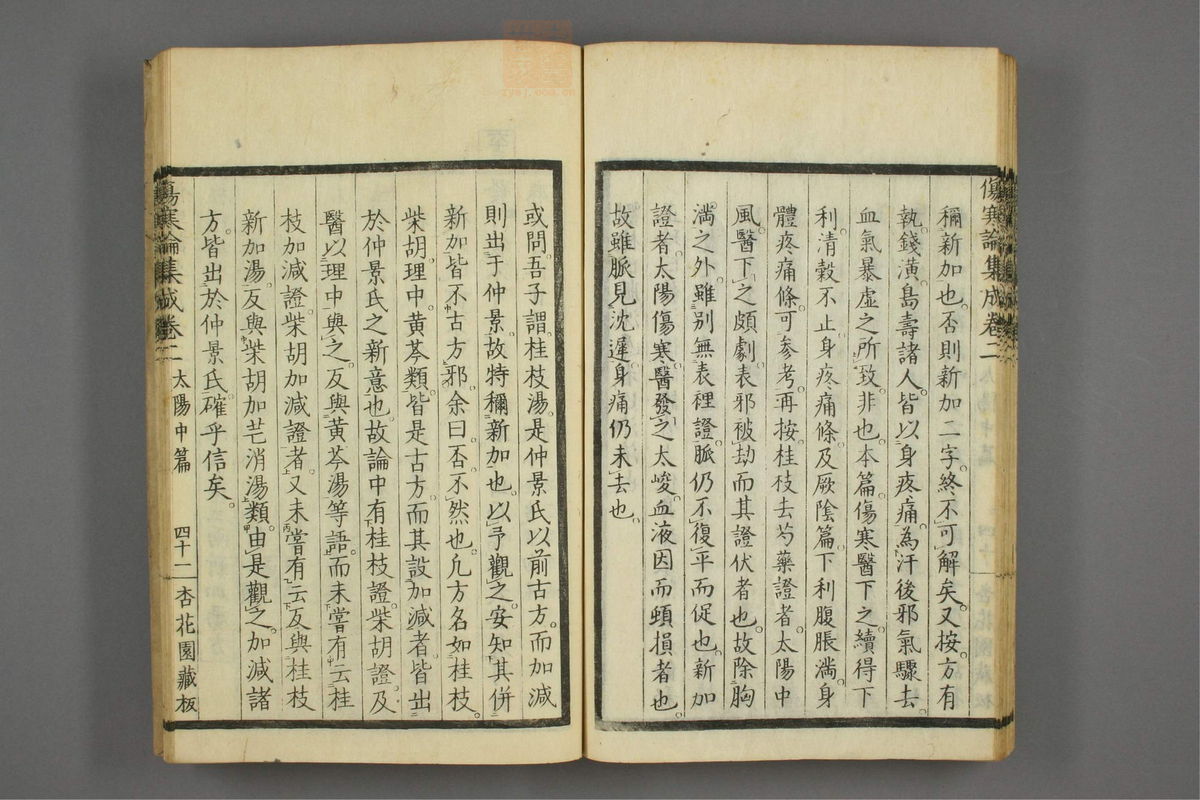 傷寒論集成卷二
稱新加也。否則新加二字。終不可解矣。又按。方有
執錢潢島壽諸人。皆以身疼痛。為汗後邪氣驟去。
血氣暴虛之所致。非也。本篇傷寒醫下之續得下
利清穀不止。身疼痛條。及厥陰篇下利腹脹滿。身
體疼痛條。可參考。再按。桂枝去芍藥證者。太陽中
風。醫下之頗劇。表邪被劫而其證伏者也。故除胸
滿之外。雖別無表裡證。脈仍不復平而促也。新加
證者。太陽傷寒。醫發之太峻。血液因而頓損者也。
故雖脈見沈遲。身痛仍未去也。
或問。吾子謂。桂枝湯。是仲景氏以前古方。而加減
則出于仲景。故特稱新加也。以予觀之。安知其併
新加皆不古方邪。余曰。否。不然也。凡方名如桂枝。
柴胡。理中。黄芩類。皆是古方。而其設加減者。皆出
於仲景氏之新意也。故論中有桂枝證。柴胡證。及
醫以理中與之。反與黄芩湯等語。而未嘗有云桂
枝加減證。柴胡加減證者。又未嘗有云反與桂枝
新加湯。反與柴胡加芒消湯類。由是觀之。加減諸
方。皆出於仲景氏。確乎信矣。
傷寒論集成卷二 太陽中篇 四十二 杏花園藏板